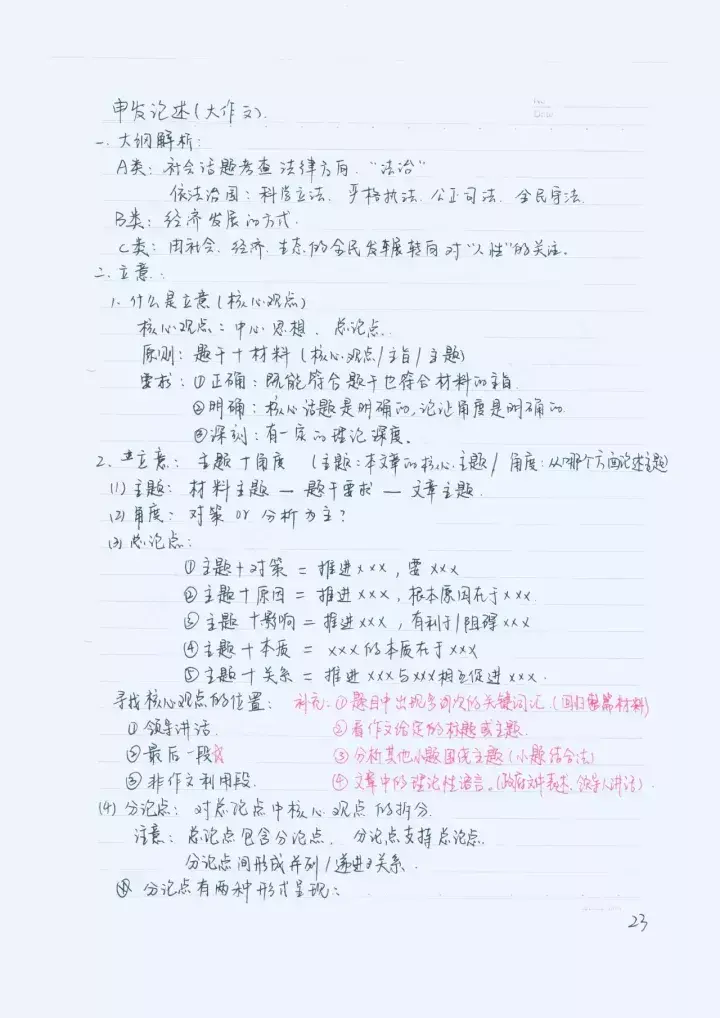 申发论述(大作文).
一. 大纲解析:
A类: 社会话题考查法律方向. "法治"
依法治国: 科学立法. 严格执法. 公正司法. 全民守法.
B类: 经济发展的方式.
C类: 由社会. 经济. 生态的全民发展转向对"人性"的关注.
二. 立意:
1. 什么是立意(核心观点)
核心观点: 中心思想. 总论点.
原则: 题干+材料(核心观点/主旨/主题)
要求: ①正确: 既能符合题干也符合材料的主旨
②明确: 核心话题是明确的, 论证角度是明确的.
③深刻: 有一定的理论深度.
2. 立意: 主题+角度 (主题: 本文章的核心主题/ 角度: 从哪个方面论述主题)
(1) 主题: 材料主题 — 题干要求 — 文章主题.
(2) 角度: 对策 or 分析为主?
(3) 总论点:
① 主题+对策 = 推进xxx, 要xxx
② 主题+原因 = 推进xxx, 根本原因在于xxx.
③ 主题+影响 = 推进xxx, 有利于/阻碍xxx
④ 主题+本质 = xxx的本质在于xxx
⑤ 主题+关系 = 推进xxx与xxx相互促进xxx.
寻找核心观点的位置: 补充: ①题目中出现多词次的关键词汇(回归材料)
① 领导讲话. ②看作文给定的标题或主题.
② 最后一段 ③分析其他小题围绕主题(小题结合法)
③ 非作文利用段. ④文章中的理论性语言.(政府文件表述. 领导人讲话).
(4) 分论点: 对总论点中核心观点的拆分.
注意: 总论点包含分论点. 分论点支持总论点.
分论点间形成并列/递进关系.
分论点有两种形式呈现:
23